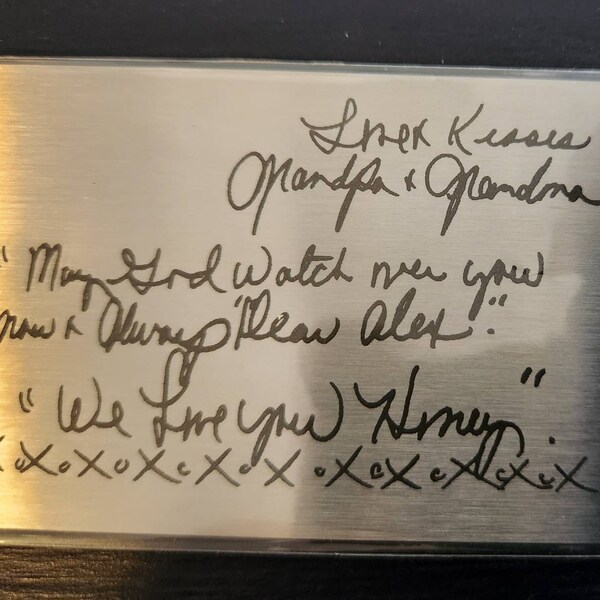 Love x Kisses
Grandpa x Grandma
"May God Watch over you
now x Always "Dear Alex".
"We Love you Honey".
xoxoxoxoxox oxoxoxoxox